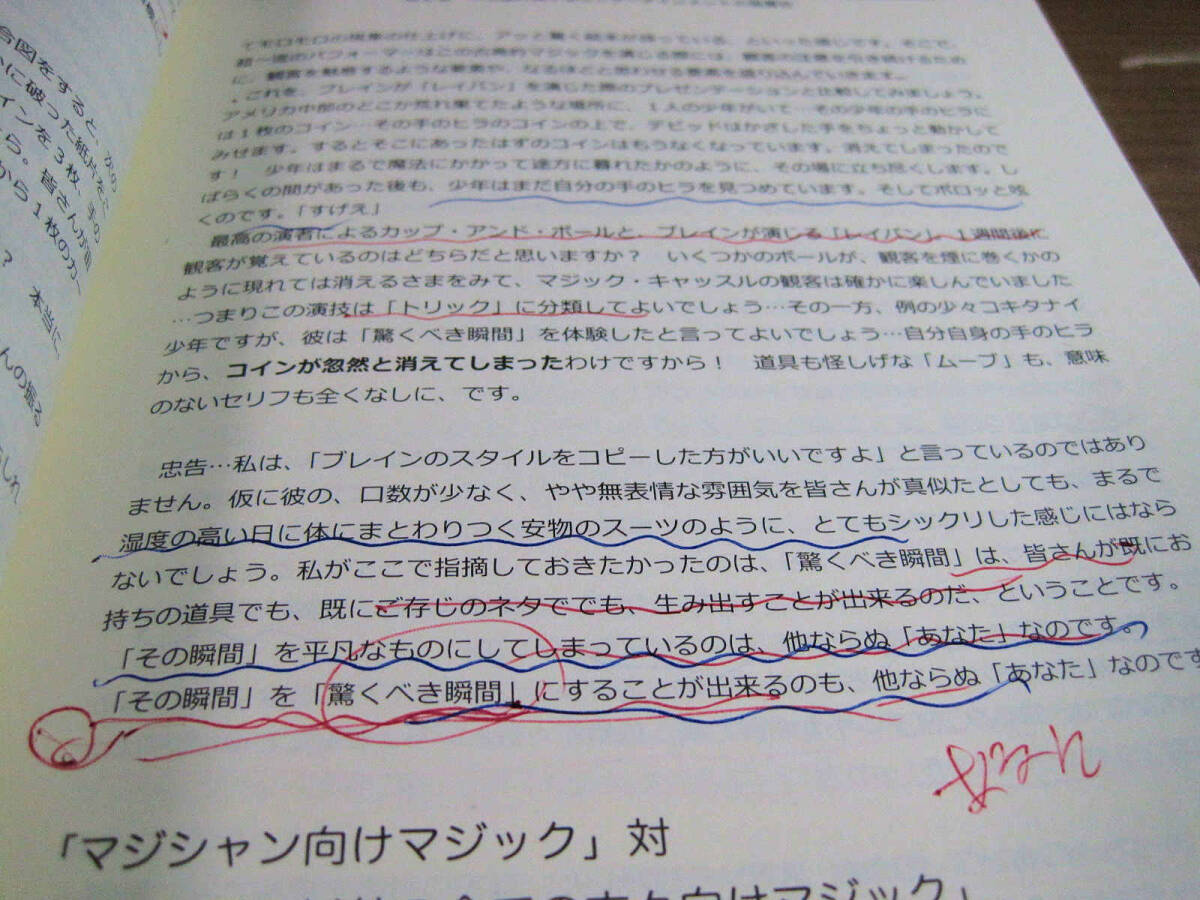 てモロモロの現象の仕上げに、アッと驚く結末が待っている、といった感じです。そこで、
超一流のパフォーマーはこの古典的マジックを演じる際には、観客の注意を引き続けるため
に、観客を魅惑するような要素や、なるほどと思わせる要素を盛り込んでいきます。
これを、ブレインが「レイバン」を演じた際のプレゼンテーションと比較してみましょう。
アメリカ中部のどこか荒れ果てたような場所に、1人の少年がいて…その少年の手のヒラに
は1枚のコイン…その手のヒラのコインの上で、デビッドはかざした手をちょっと動かして
みせます。するとそこにあったはずのコインはもうなくなっています。消えてしまったので
す! 少年はまるで魔法にかかって途方に暮れたかのように、その場に立ち尽くします。し
ばらくの間があった後も、少年はまだ自分の手のヒラを見つめています。そしてボロッと呟
くのです。「すげえ」
最高の演者によるカップ・アンド・ボールと、ブレインが演じる「レイバン」、1週間後に
観客が覚えているのはどちらだと思いますか? いくつかのボールが、観客を煙に巻くかの
ように現れては消えるさまをみて、マジック・キャッスルの観客は確かに楽しんでいました
…つまりこの演技は「トリック」に分類してよいでしょう…その一方、例の少々コキタナイ
少年ですが、彼は「驚くべき瞬間」を体験したと言ってよいでしょう…自分自身の手のヒラ
から、コインが忽然と消えてしまったわけですから! 道具も怪しげな「ムーブ」も、意味
のないセリフも全くなしに、です。
忠告…私は、「ブレインのスタイルをコピーした方がいいですよ」と言っているのではあり
ません。仮に彼の、口数が少なく、やや無表情な雰囲気を皆さんが真似たとしても、まるで
湿度の高い日に体にまとわりつく安物のスーツのように、とてもシックリした感じにはなら
ないでしょう。私がここで指摘しておきたかったのは、「驚くべき瞬間」は、皆さんが既にお
持ちの道具でも、既にご存じのネタででも、生み出すことが出来るのだ、ということです。
「その瞬間」を平凡なものにしてしまっているのは、他ならぬ「あなた」なのです。
「その瞬間」を「驚くべき瞬間」にすることが出来るのも、他ならぬ「あなた」なのです
「マジシャン向けマジック」対
向けマジック」
合図をすると、
に破った紙片を
インを3枚、手の
ら。皆さんが
から1枚の
?
本当に、
んの振る